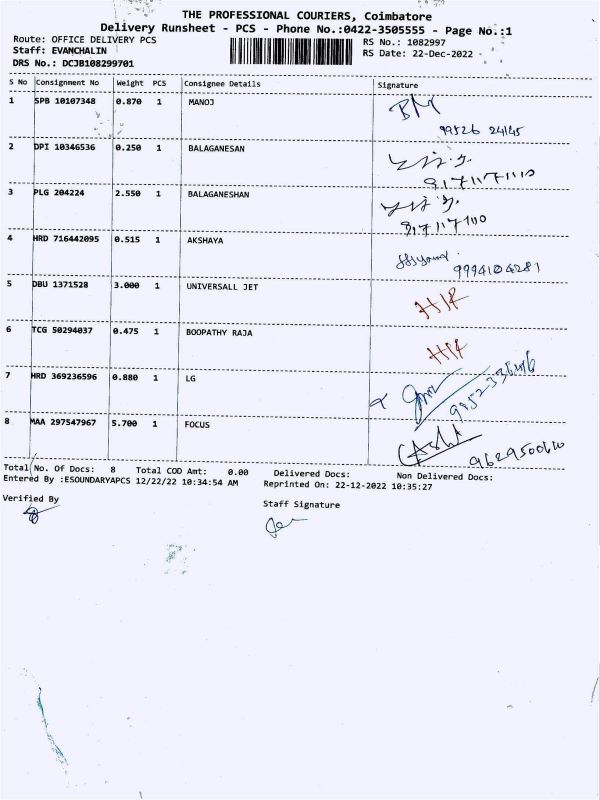 THE PROFESSIONAL COURIERS, Coimbatore
Delivery Runsheet - PCS - Phone No.:0422-3505555 - Page No.:1
Route: OFFICE DELIVERY PCS
RS No.: 1082997
Staff: EVANCHALIN
RS Date: 22-Dec-2022
DRS No.: DCJB108299701
S No Consignment No Weight PCS Consignee Details Signature
1 SPB 10107348 0.870 1 MANOJ BM
99526 24145
2 DPI 10346536 0.250 1 BALAGANESAN
3 PLG 204224 2.550 1 BALAGANESHAN
4 HRD 716442095 0.515 1 AKSHAYA
9994104281
5 DBU 1371528 3.000 1 UNIVERSALL JET
6 TCG 50294037 0.475 1 BOOPATHY RAJA
7 HRD 369236596 0.880 1 LG
8 MAA 297547967 5.700 1 FOCUS
Total No. Of Docs: 8 Total COD Amt: 0.00 Delivered Docs: Non Delivered Docs:
Entered By :ESOUNDARYAPCS 12/22/22 10:34:54 AM Reprinted On: 22-12-2022 10:35:27
Verified By
Staff Signature